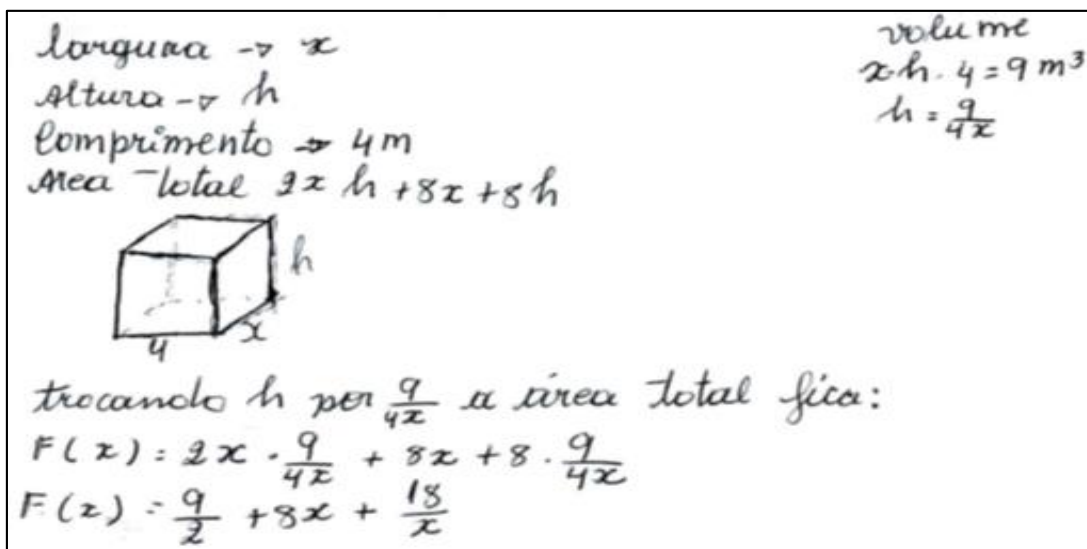 largura → x
Altura → h
Comprimento → 4m
Área Total 2x h + 8x + 8h
volume
x·h·4 = 9 m³
h = 9/4x
h
x
4
trocando h por 9/4x a área total fica:
F(x) = 2x · 9/4x + 8x + 8 · 9/4x
F(x) = 9/2 + 8x + 18/x